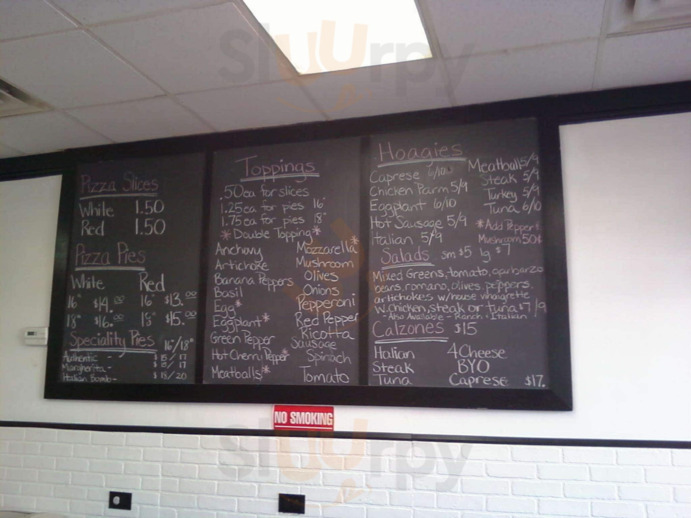 Pizza Slices
White 1.50
Red 1.50
Pizza Pies
White Red
16" $14.00 16" $13.00
18" $16.00 18" $15.00
Speciality Pies 16/18"
Authentic - $15/17
Margherita -
Italian Bomb - $18/20
Toppings
.50ea for slices
1.25ea for pies 16"
1.75ea for pies 18"
*Double Topping*
Anchovy Mozzarella*
Artichoke Mushroom
Banana Peppers Olives
Basil Onions
Egg* Pepperoni
Eggplant* Red Pepper
Green Pepper Ricotta
Hot Cherry Pepper Sausage
Spinach
Meatballs* Tomato
Hoagies
Caprese 6/10 Meatball 5/9
Chicken Parm 5/9 Steak 5/9
Eggplant 6/10 Turkey 5/9
Hot Sausage 5/9 Tuna 6/10
Italian 5/9 *Add Pepper &
Mushroom 50¢
Salads sm $5 lg $7
Mixed Greens, tomato, garbanzo
artichokes w/house
w.chicken, steak or tuna $7/9
- Also Available - Ranch - Italian
Calzones $15
Italian 4 Cheese
Steak BYO
Tuna Caprese $17.
NO SMOKING
sluurpy
sluurpy